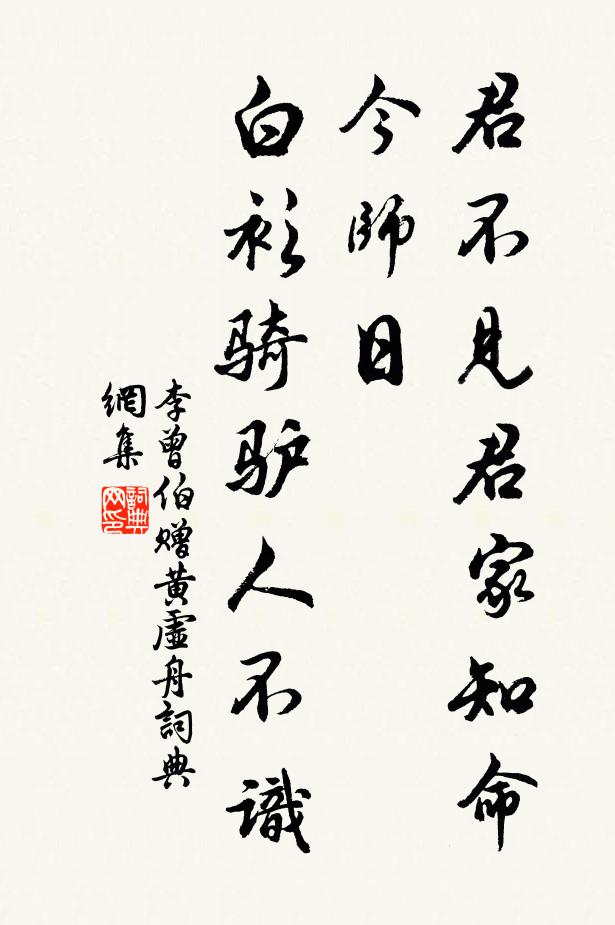 君不見君家知命
今師日
白衫骑驴人不識
李曾伯赠黄虛舟詞典
網集
詞典
网印